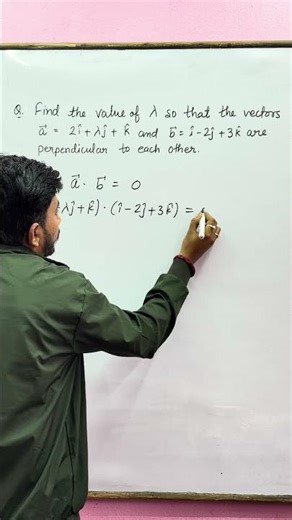 Q. Find the value of λ so that the vectors
a⃗ = 2î + λĵ + k̂ and b⃗ = î - 2ĵ + 3k̂ are
perpendicular to each other.
a⃗ . b⃗ = 0
λĵ + k̂) . (î - 2ĵ + 3k̂) =